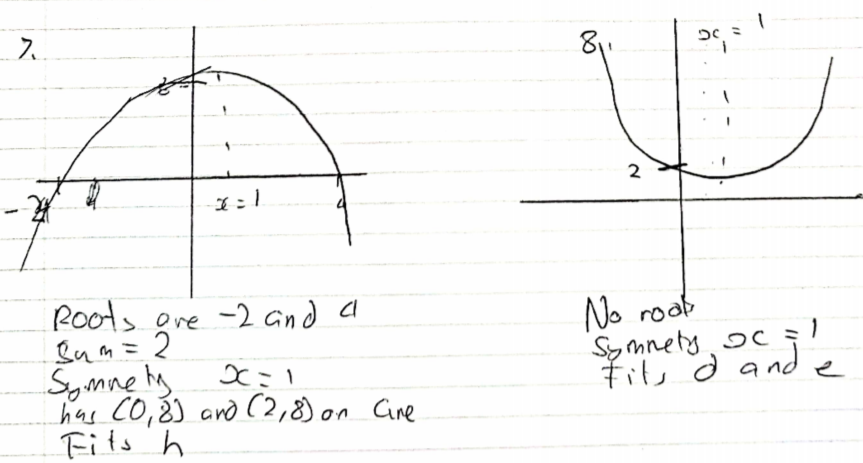 7.
8.
x = 1
x = 1
2
Roots are -2 and 4
Sum = 2
Symmety x = 1
has (0,8) and (2,8) on line
Fits h
No roots
Symmety x = 1
Fits d and e